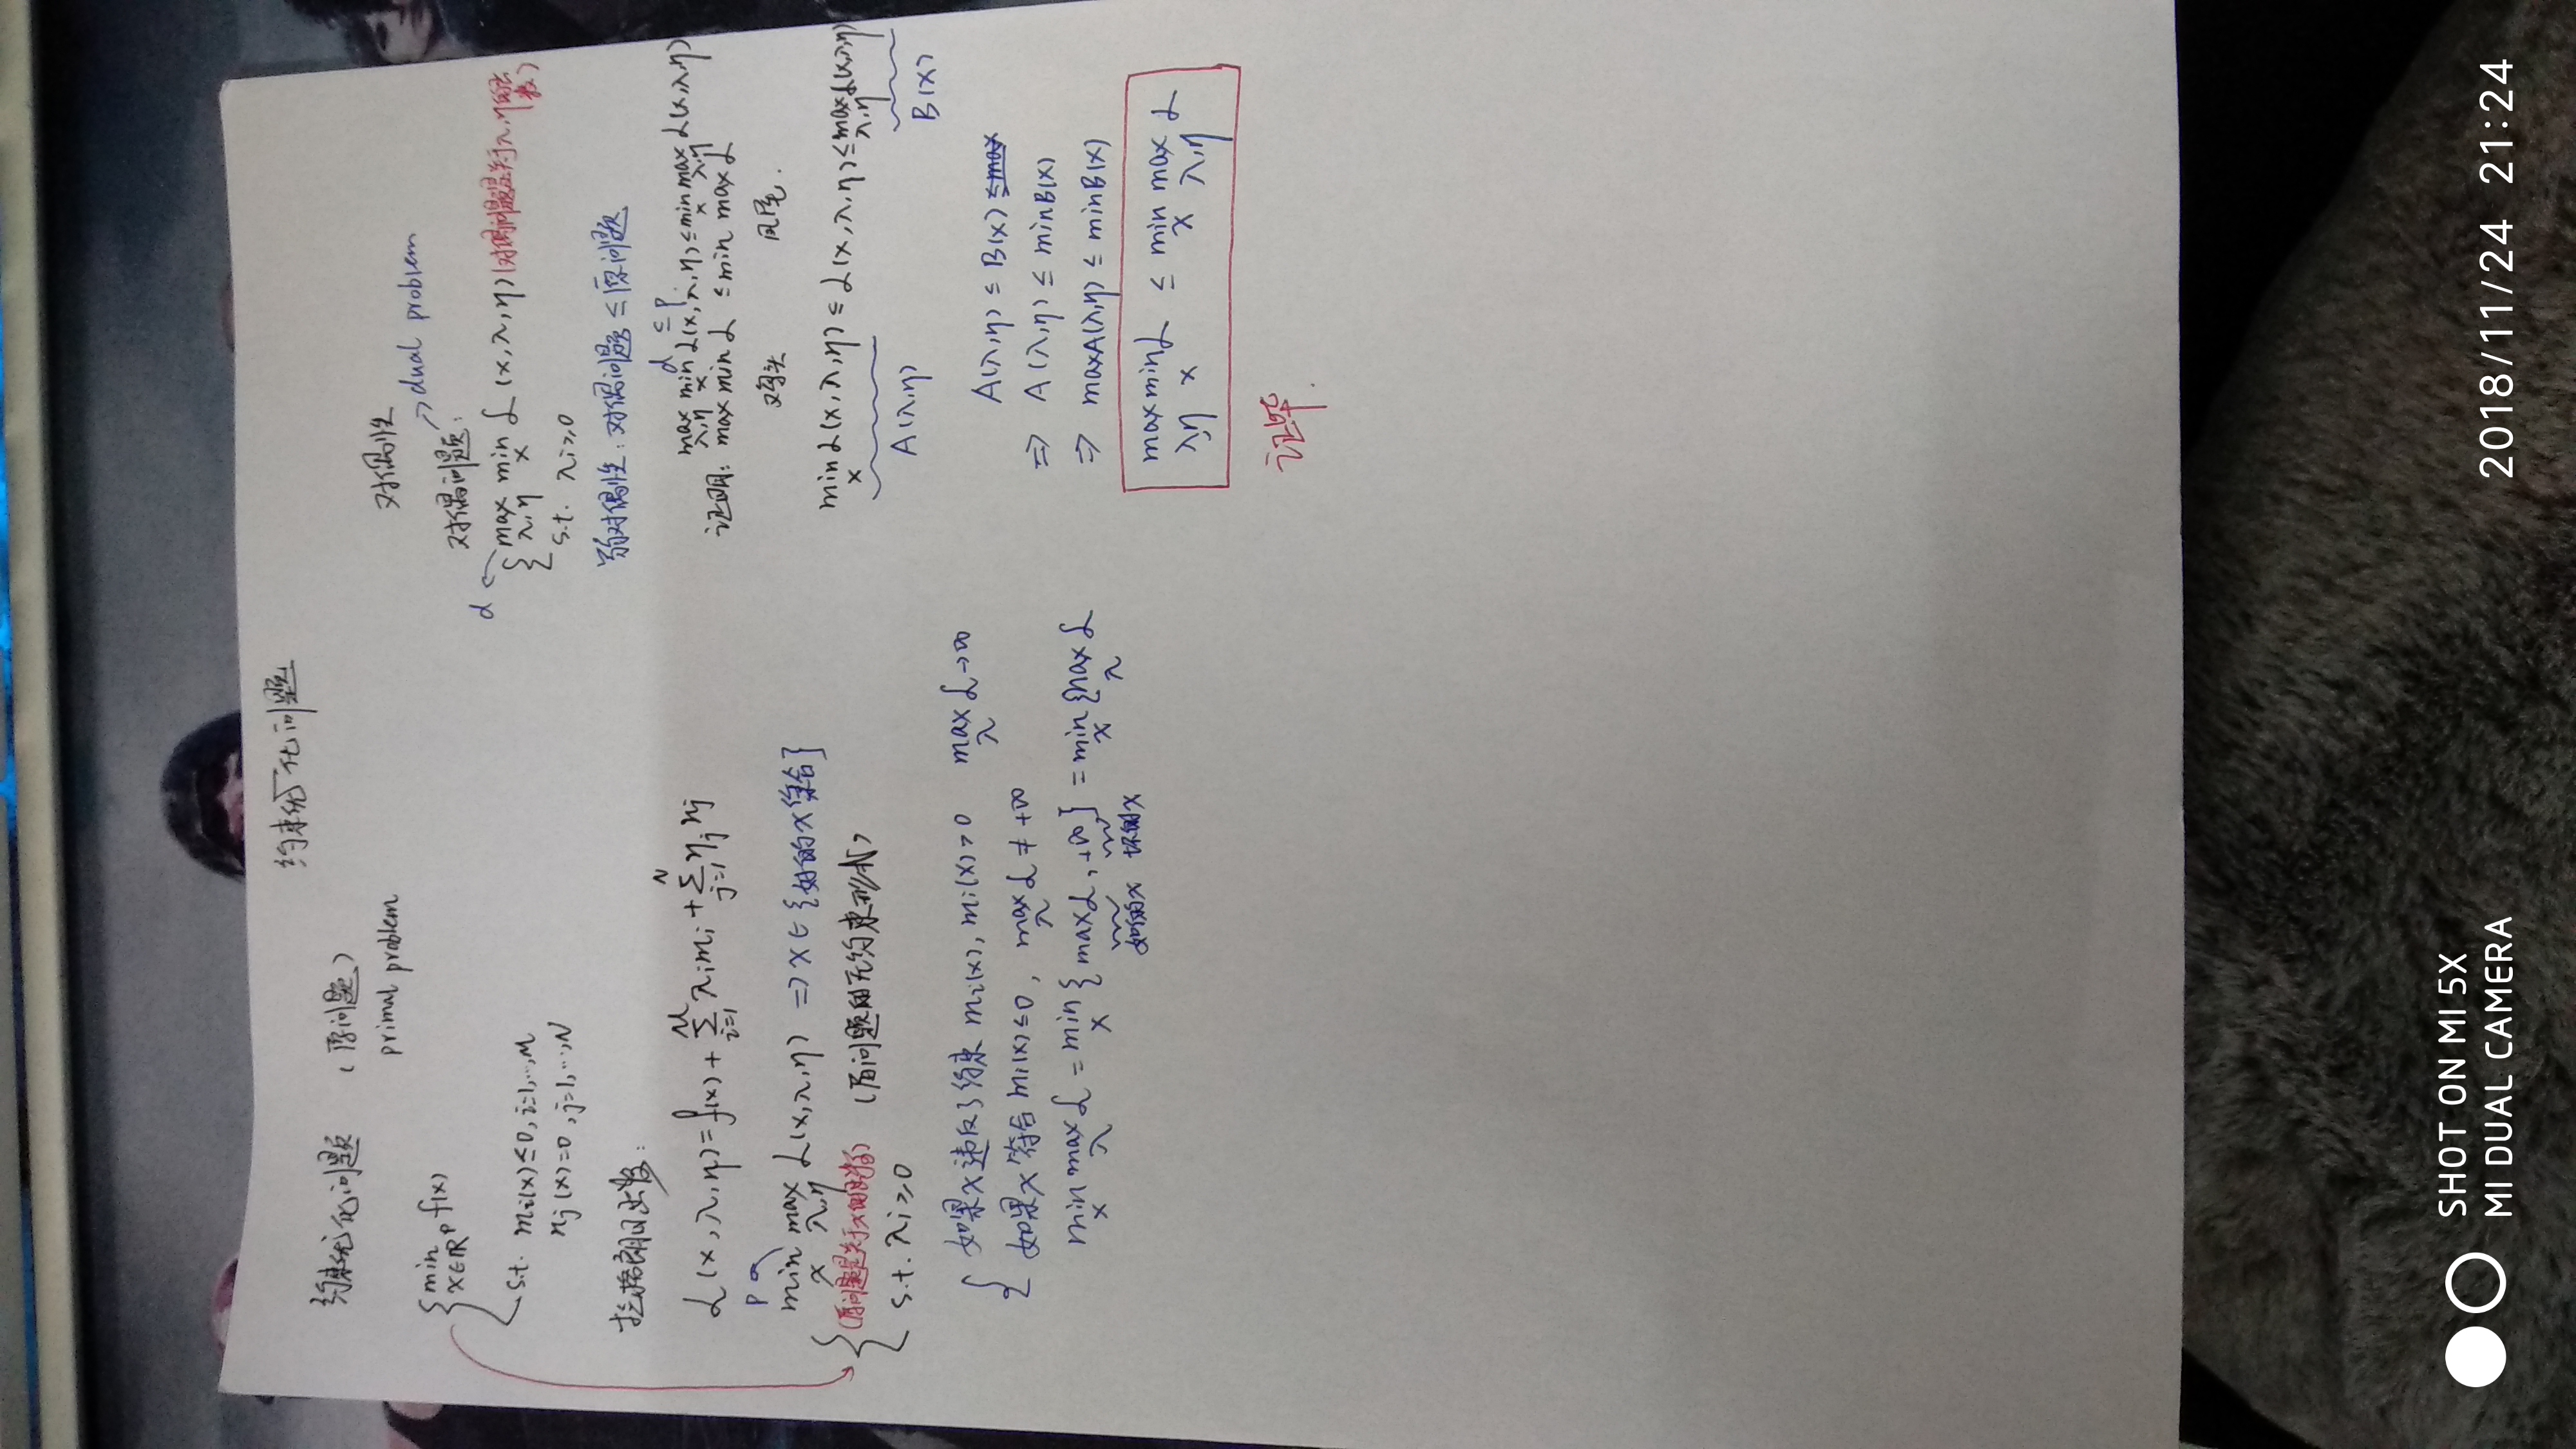 约束优化问题
约束优化问题 (原问题)
primal problem
min f(x)
x∈ℝᵖ
s.t. mi(x)≤0, i=1,…,M
nj(x)=0, j=1,…,N
拉格朗日函数:
L(x,λ,η)=f(x)+∑λimi+∑ηjnj
M N
i=1 j=1
P
min max L(x,λ,η) ⇒ x∈{好的x集合}
x λ,η
(原问题是关于x的函数) (原问题的无约束形式)
s.t. λi≥0
如果x违反了约束 mi(x), mi(x)>0 max L→∞
λ
如果x符合 mi(x)≤0, max L≠+∞
λ
min max L = min {max L, +∞} = min {max L
x λ x x λ
好的x 坏的x
对偶性
→dual problem
对偶问题:
d
max min L(x,λ,η) (对偶问题是关于λ,η的函数)
λ,η x
s.t. λi≥0
弱对偶性: 对偶问题≤原问题
d ≤ P
max min L(x,λ,η)≤min max L(x,λ,η)
λ,η x x λ,η
证明: max min L ≤ min max L
鸡头 凤尾.
min L(x,λ,η) ≤ L(x,λ,η) ≤ max L(x,λ,η)
x λ,η
A(λ,η) B(x)
A(λ,η) ≤ B(x) ≤max
⇒ A(λ,η) ≤ minB(x)
⇒ maxA(λ,η) ≤ minB(x)
max min L ≤ min max L
λ,η x x λ,η
证毕.
SHOT ON MI 5X
MI DUAL CAMERA
2018/11/24 21:24